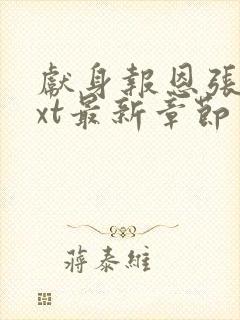 獻身報恩張
xt最新章節
蔣泰維